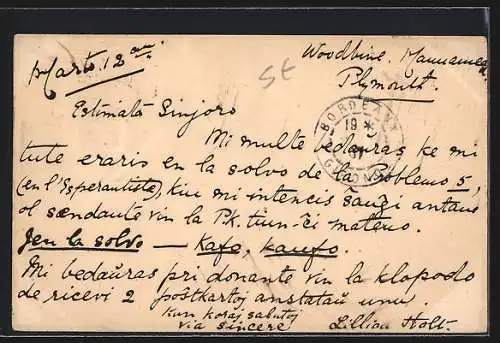 Marto. 12an.
Woodbine, Mannamead.
Plymouth.
St
Estimata Sinjoro
BORDEAUX
19
07
GIRONDE
Mi multe bedaŭras ke mi
tute eraris en la solvo de la Problemo 5,
(en l'Esperantisto), kiu mi intencis ŝanĝi antaŭ
ol sendante vin la P.k. tiun-ĉi mateno.
Jen la solvo — Kafo, kaufo.
Mi bedaŭras pri donante vin la klopodo
de ricevi 2 poŝtkartoj anstataŭ unu.
kun koraj salutoj
via sincere
Lillian Holt.